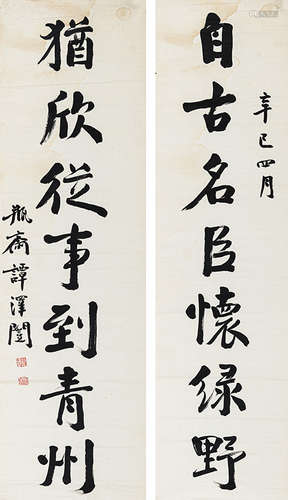 自古名臣懷緑野
辛巳四月
猶欣從事到青州
瓶齋譚澤闓